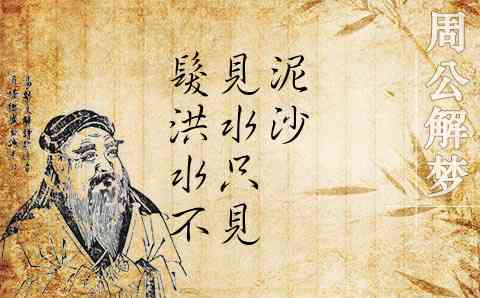 髮洪水不
見水只見
泥沙
周公解梦